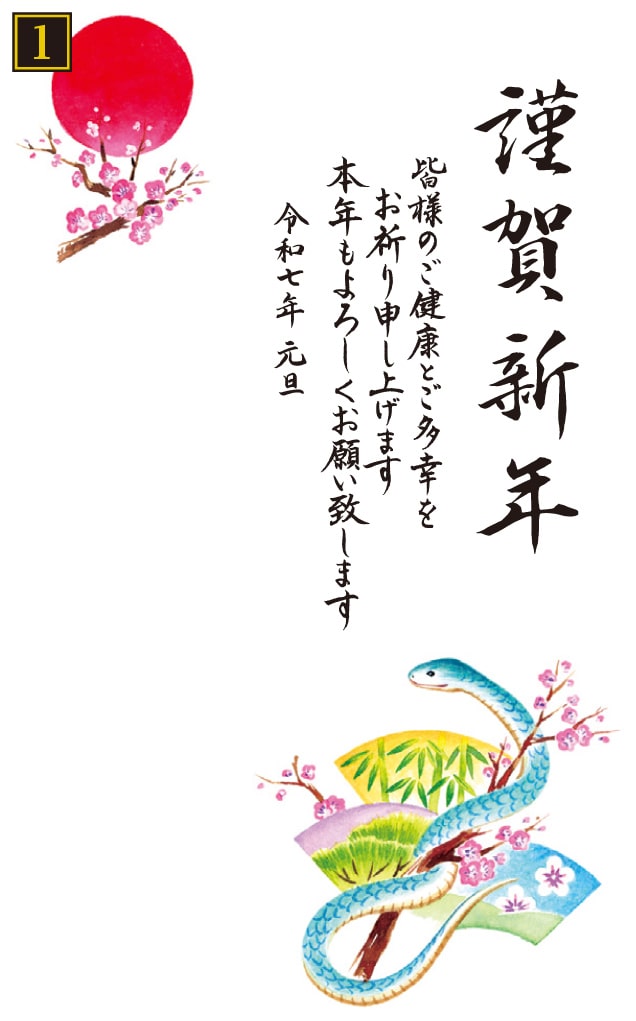 1
謹賀新年
皆様のご健康とご多幸を
お祈り申し上げます
本年もよろしくお願い致します
令和七年 元旦